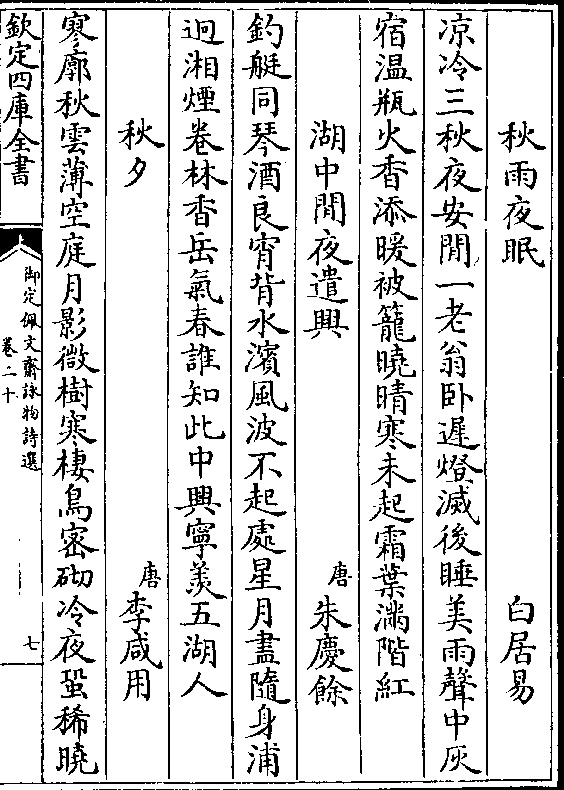 秋雨夜眠　白居易
凉冷三秋夜安閒一老翁卧遲燈滅後睡美雨聲中灰
宿温瓶火香添暖被籠曉晴寒未起霜葉滿階紅
湖中閒夜遣興　唐朱慶餘
釣艇同琴酒良宵背水濱風波不起處星月盡隨身浦
迥湘煙卷林香岳氣春誰知此中興寧羨五湖人
秋夕　唐李咸用
寥廓秋雲薄空庭月影微樹寒棲鳥密砌冷夜蛩稀曉
欽定四庫全書
御定佩文齋詠物詩選
卷二十
七